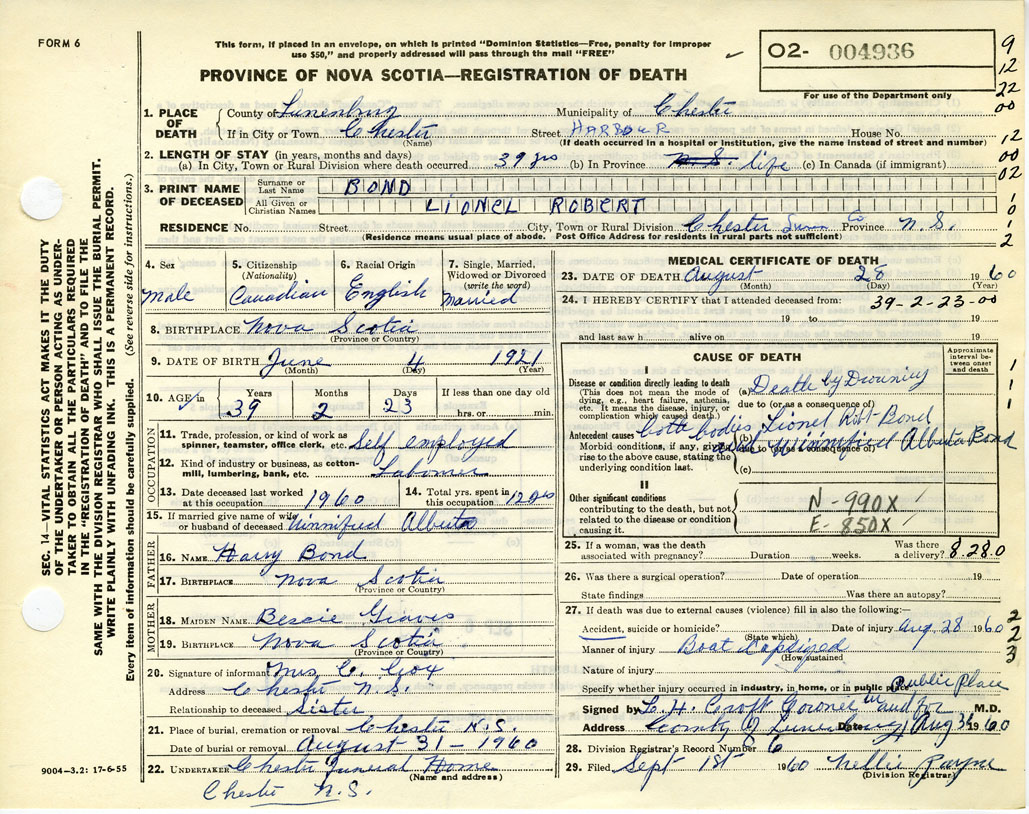 FORM 6
This form, if placed in an envelope, on which is printed "Dominion Statistics—Free, penalty for improper
use $50," and properly addressed will pass through the mail "FREE"
O2- 004936
For use of the Department only
PROVINCE OF NOVA SCOTIA—REGISTRATION OF DEATH
9
12
22
00
12
00
02
1
0
1
2
SEC. 14—VITAL STATISTICS ACT MAKES IT THE DUTY
OF THE UNDERTAKER OR PERSON ACTING AS UNDER-
TAKER TO OBTAIN ALL THE PARTICULARS REQUIRED
IN THE "REGISTRATION OF DEATH" AND TO FILE THE
SAME WITH THE DIVISION REGISTRAR WHO SHALL ISSUE THE BURIAL PERMIT.
WRITE PLAINLY WITH UNFADING INK. THIS IS A PERMANENT RECORD.
Every item of information should be carefully supplied. (See reverse side for instructions.)
1. PLACE OF DEATH
County of Lunenburg Municipality of Chester
If in City or Town Chester Street HARBOUR House No.
(Name) (If death occurred in a hospital or institution, give the name instead of street and number)
2. LENGTH OF STAY (in years, months and days)
(a) In City, Town or Rural Division where death occurred 39 yrs (b) In Province N.S. life (c) In Canada (if immigrant)
3. PRINT NAME OF DECEASED
Surname or Last Name BOND
All Given or Christian Names LIONEL ROBERT
RESIDENCE No. Street City, Town or Rural Division Chester Co Province N.S.
(Residence means usual place of abode. Post Office Address for residents in rural parts not sufficient)
4. Sex Male
5. Citizenship (Nationality) Canadian
6. Racial Origin English
7. Single, Married, Widowed or Divorced (write the word) Married
8. BIRTHPLACE Nova Scotia
(Province or Country)
9. DATE OF BIRTH June 4 1921
(Month) (Day) (Year)
10. AGE in Years Months Days If less than one day
39 2 23 hrs. or min.
OCCUPATION
11. Trade, profession, or kind of work as spinner, teamster, office clerk, etc. Self employed
12. Kind of industry or business, as cotton-mill, lumbering, bank, etc. Labourer
13. Date deceased last worked at this occupation 1960
14. Total yrs. spent in this occupation 12 yrs
15. If married give name of wife or husband of deceased Winnifred Alberta
FATHER
16. NAME Harry Bond
17. BIRTHPLACE Nova Scotia
(Province or Country)
MOTHER
18. MAIDEN NAME Bessie Graves
19. BIRTHPLACE Nova Scotia
(Province or Country)
20. Signature of informant Mrs C. Cox
Address Chester N.S.
Relationship to deceased Sister
21. Place of burial, cremation or removal Chester N.S.
Date of burial or removal August 31 - 1960
22. UNDERTAKER Chester Funeral Home
(Name and address)
Chester N.S.
9004—3.2: 17-6-55
MEDICAL CERTIFICATE OF DEATH
23. DATE OF DEATH August 28 1960
(Month) (Day) (Year)
24. I HEREBY CERTIFY that I attended deceased from: 39-2-23-00
19 to 19
and last saw h alive on 19
CAUSE OF DEATH
Approximate interval between onset and death
I
Disease or condition directly leading to death
(This does not mean the mode of dying, e.g., heart failure, asthenia, etc. It means the disease, injury, or complication which caused death.)
(a) Death by Drowning
due to (or as a consequence of)
Antecedent causes
Morbid conditions, if any, giving rise to above cause, stating the underlying condition last.
both bodies Lionel Robt Bond
(b) and Winnifred Alberta Bond
due to (or as a consequence of)
(c)
II
Other significant conditions contributing to the death, but not related to the disease or condition causing it.
N-990X
E-850X
1
1
1
25. If a woman, was the death associated with pregnancy? Duration weeks. Was there a delivery? 8.28.0
26. Was there a surgical operation? Date of operation 19
State findings Was there an autopsy?
27. If death was due to external causes (violence) fill in also the following:—
Accident, suicide or homicide? Date of injury Aug 28 1960
(State which)
Manner of injury Boat Capsized
(How sustained)
Nature of injury
Specify whether injury occurred in industry, in home, or in public place Public Place
2
2
3
Signed by C. H. Croft Coroner in and for M.D.
Address County of Lunenburg Date Aug 1960
28. Division Registrar's Record Number 6
29. Filed Sept 1st 1960 Nellie Payne
(Division Registrar)